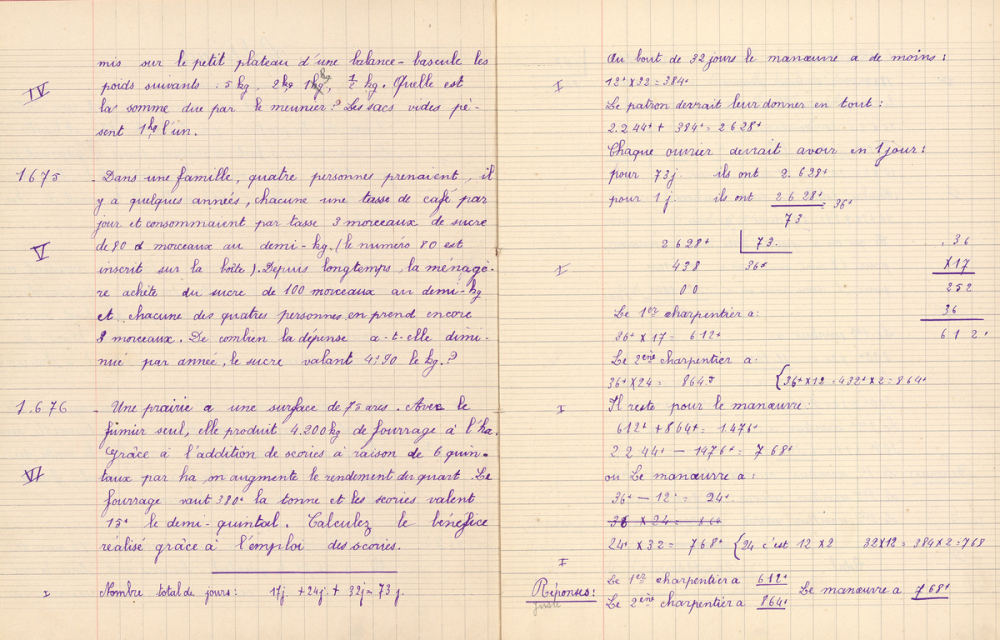 mis sur le petit plateau d'une balance-bascule les
IV poids suivants : 5 kg, 2 kg 1 kg, 1/2 kg. Quelle est
la somme due par le meunier ? Les sacs vides pè-
sent 1 kg l'un.
1675 - Dans une famille, quatre personnes prenaient, il
y a quelques années, chacune une tasse de café par
jour et consommaient par tasse 3 morceaux de sucre
V de 80 morceaux au demi-kg. (le numéro 80 est
inscrit sur la boîte). Depuis longtemps, la ménagè-
re achète du sucre de 100 morceaux au demi-kg
et chacune des quatres personnes en prend encore
3 morceaux. De combien la dépense a-t-elle dimi-
nué par année, le sucre valant 4f90 le kg. ?
1.676 - Une prairie a une surface de 75 ares. Avec le
fumier seul, elle produit 4.200 kg de fourrage à l'ha.
Grâce à l'addition de scories à raison de 6 quin-
VI taux par ha, on augmente le rendement du quart. Le
fourrage vaut 380f la tonne et les scories valent
15f le demi-quintal. Calculez le bénéfice
réalisé grâce à l'emploi des scories.
I Nombre total de jours : 17j + 24j + 32j = 73 j.
Au bout de 32 jours le manœuvre a de moins :
I 12f X 32 = 384f
Le patron devrait leur donner en tout :
2.244f + 384f = 2628f
Chaque ouvrier devrait avoir en 1 jour :
pour 73j ils ont 2.628f
pour 1 j. ils ont 2628f = 36f
73
2628f 73. 36
I 438 36f X17
00 252
Le 1er charpentier a : 36
36f X 17 = 612f 612.
Le 2ème charpentier a.
36f X 24 = 864f {36f X 12 = 432f X 2 = 864f
I Il reste pour le manœuvre :
612f + 864f = 1.476f
2244f - 1476f = 768f
ou Le manœuvre a :
36f - 12f = 24f
36 X 24 = 864
24f X 32 = 768f {24 c'est 12 X 2 32X12 = 384 X 2 = 768
I Le 1er charpentier a 612f Le manœuvre a 768f
Réponses : Le 2ème charpentier a 864f
juste